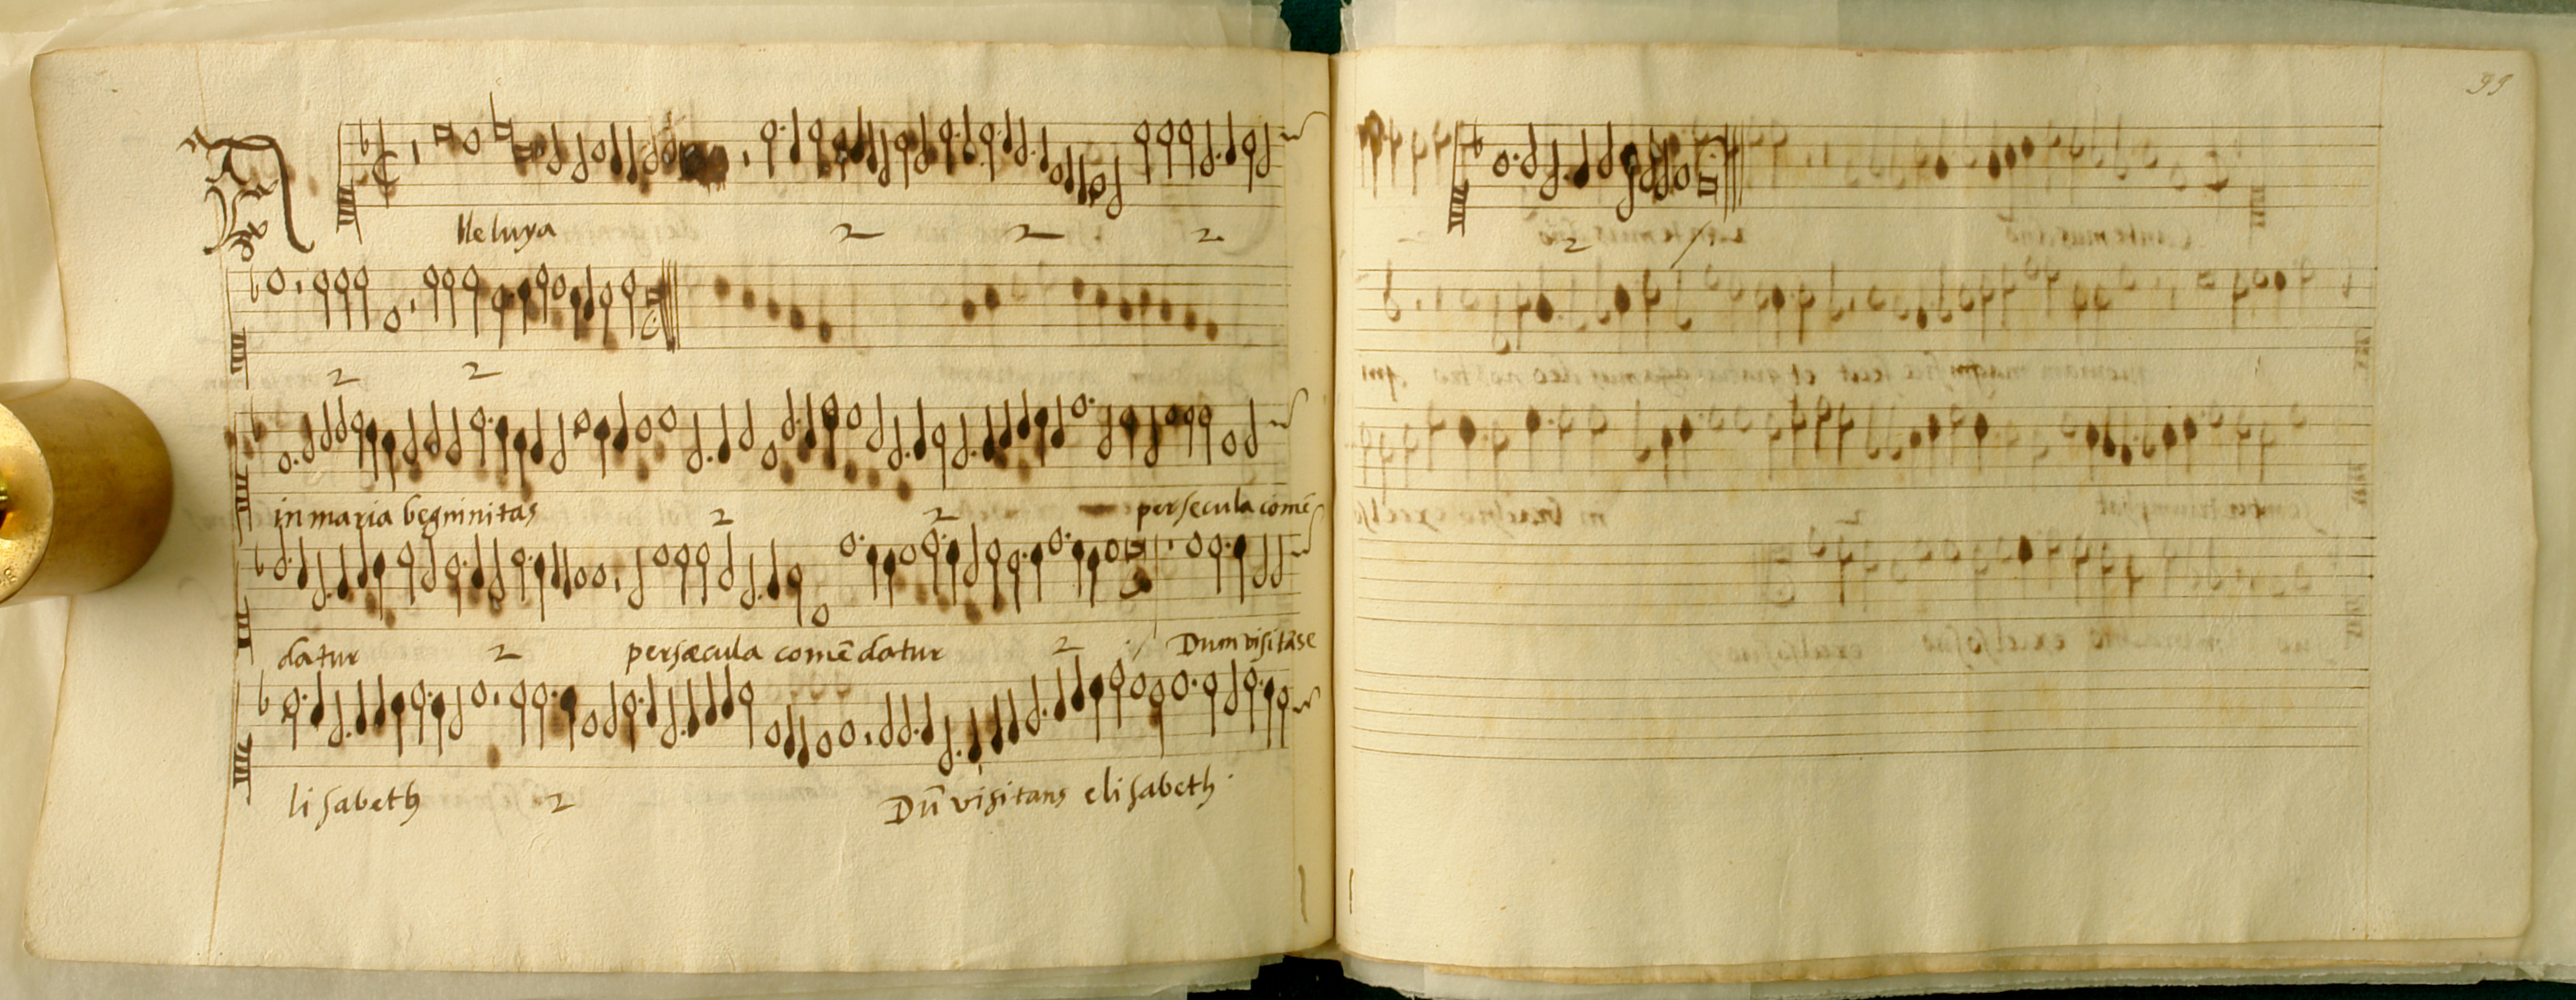 Alleluya 2 2 2
2 2
in maria begninitas 2 2 per secula comē
datur 2 persæcula comēdatur 2 ./ Dum visitās e
lisabeth 2 Dū visitans elisabeth.
99
2 /.